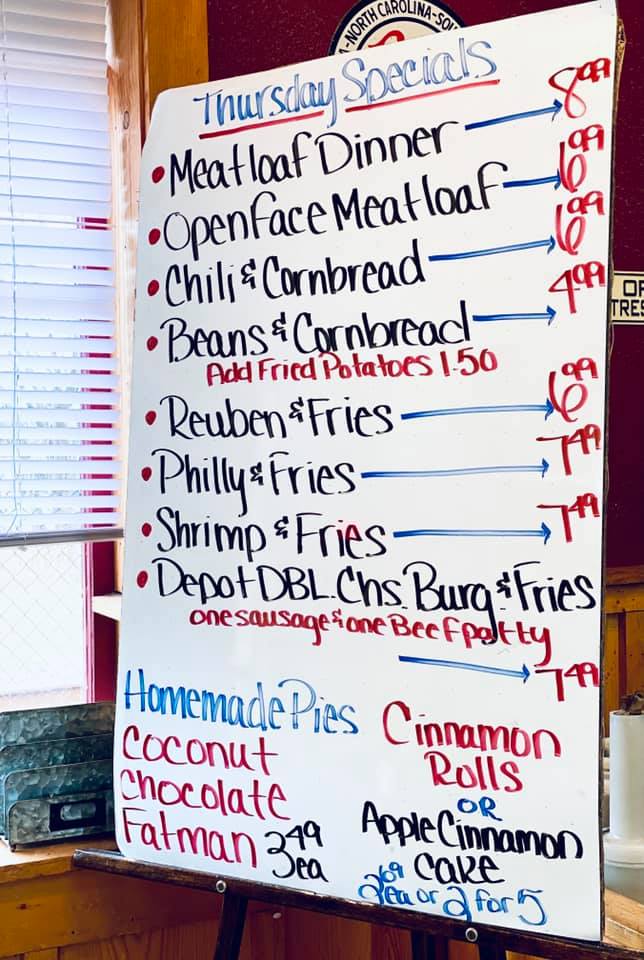 -NORTH CAROLINA-SO
Thursday Specials
• Meatloaf Dinner → 8.99
• Openface Meatloaf → 6.99
• Chili & Cornbread → 6.99
• Beans & Cornbread → 4.99
Add Fried Potatoes 1.50
• Reuben & Fries → 6.99
• Philly & Fries → 7.49
• Shrimp & Fries → 7.49
• Depot DBL. Chs. Burg & Fries
one sausage & one Beef patty
→ 7.49
Homemade Pies
Coconut
Chocolate
Fatman 3.49 ea
Cinnamon
Rolls
OR
Apple Cinnamon
Cake
2.69 ea or 2 for 5
OF
TRES